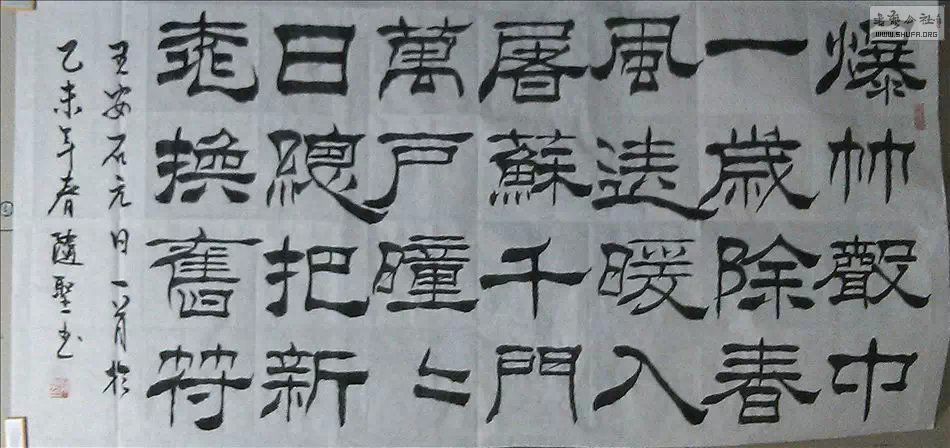 爆竹聲中
一歲除春
風送暖入
屠蘇千門
萬戶曈〻
日總把新
桃換舊符
王安石元日一首於
乙未年春隨聖书
公社
WWW.SHUFA.ORG